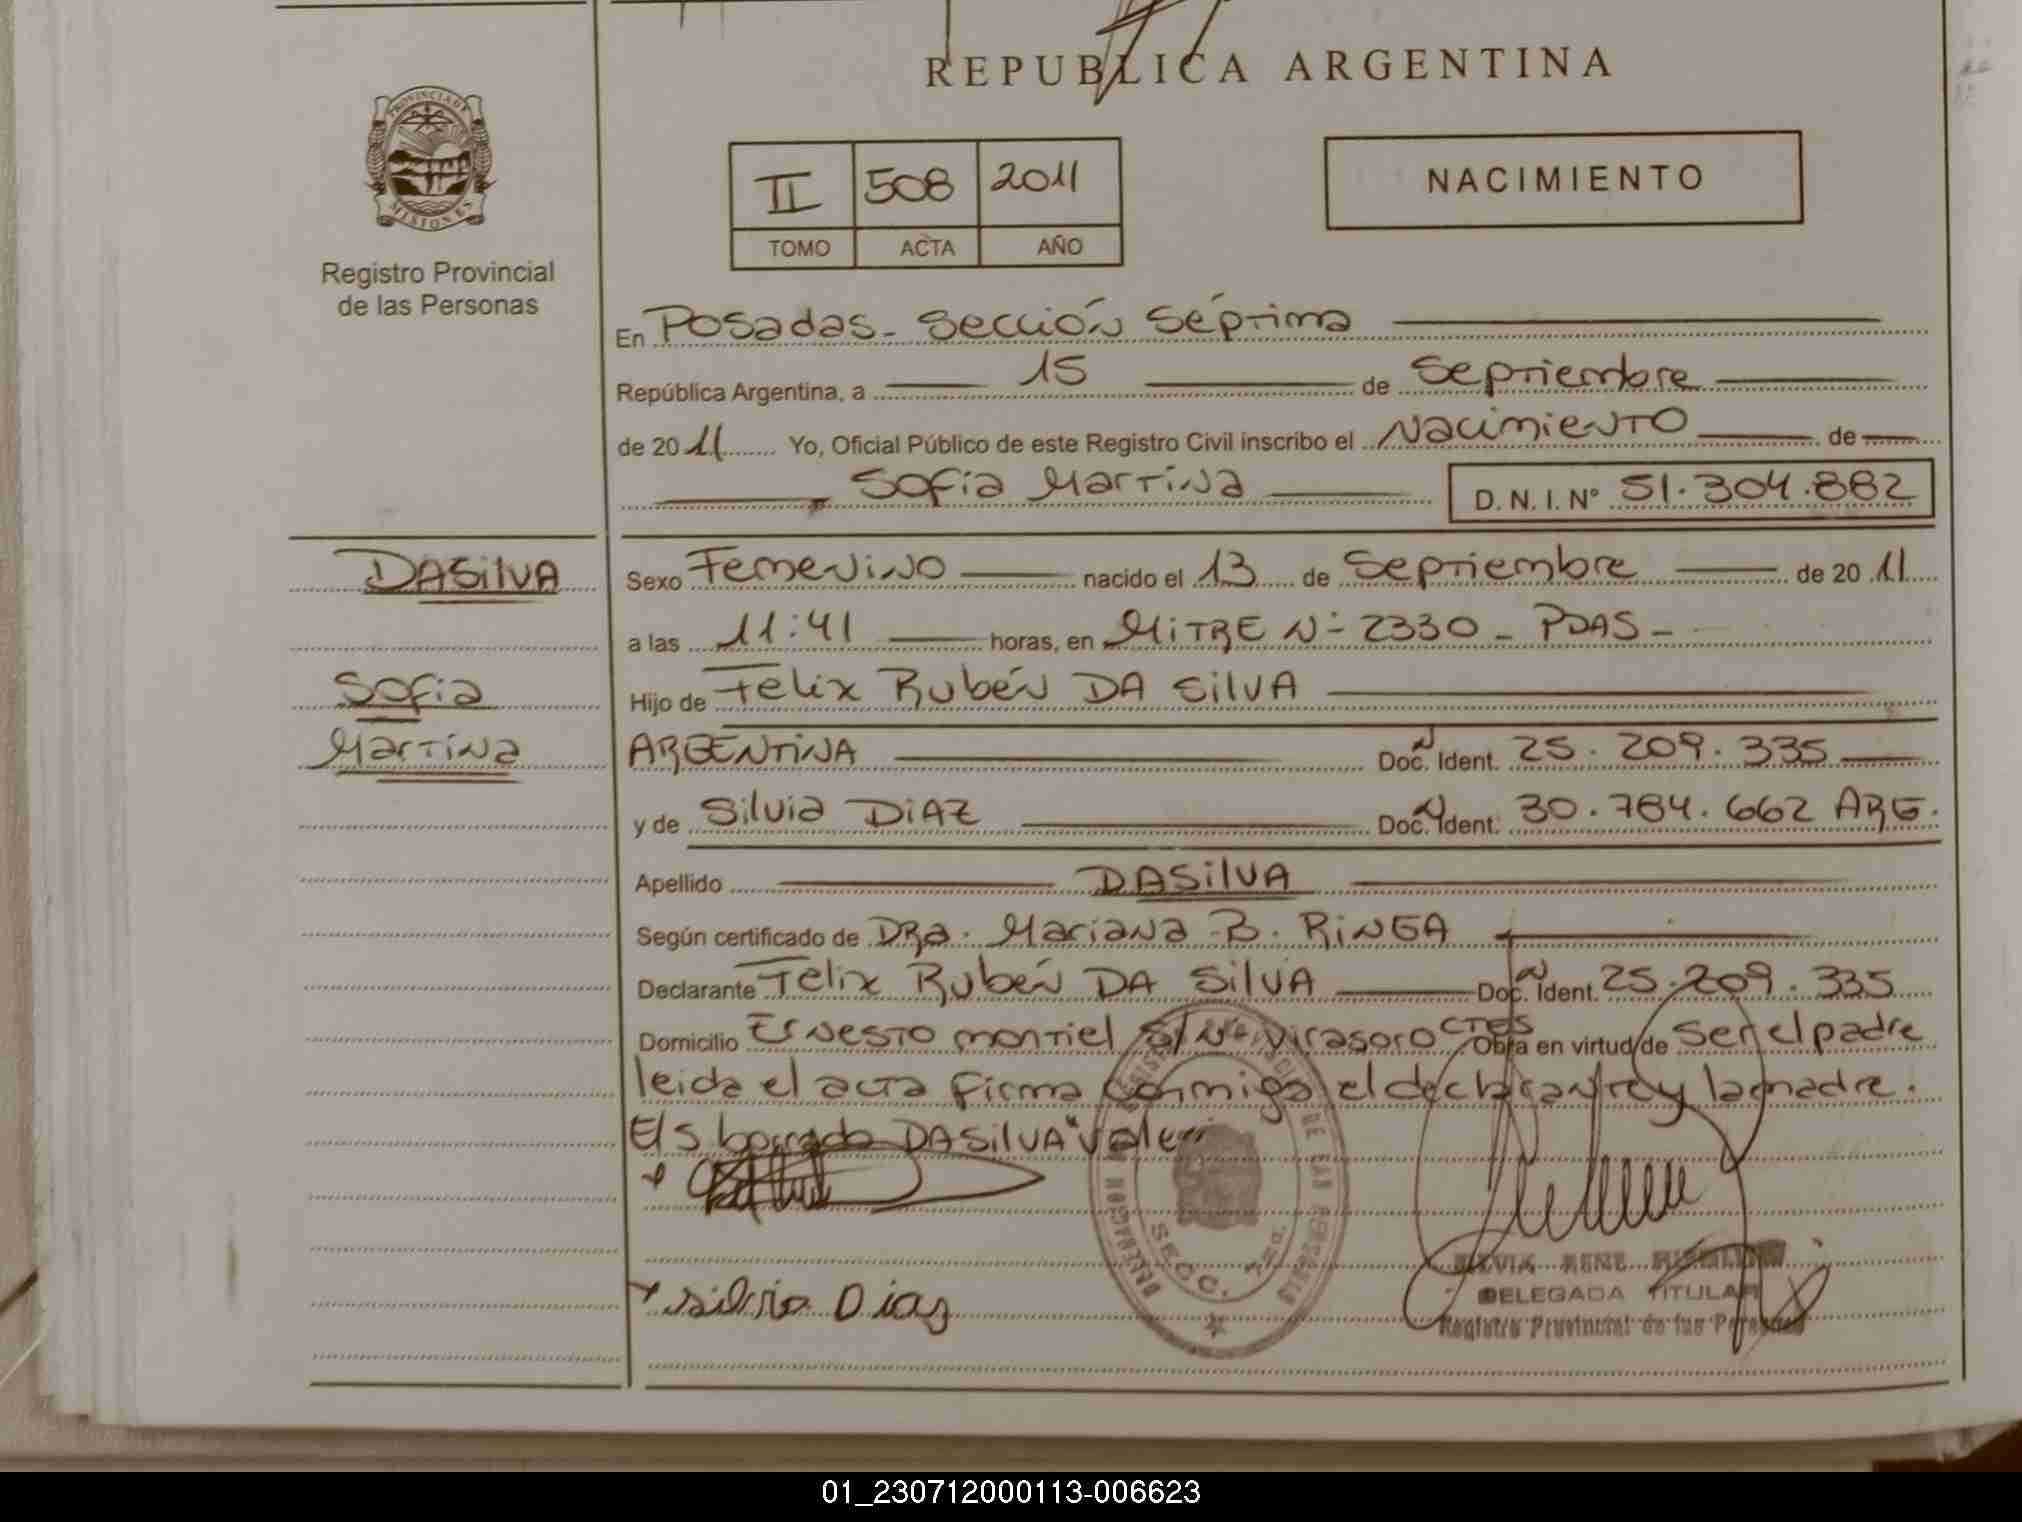 REPUBLICA ARGENTINA
PROVINCIA DE
MISIONES
Registro Provincial
de las Personas
II 508 2011
TOMO ACTA AÑO
NACIMIENTO
En Posadas - Sección Séptima
República Argentina, a 15 de Septiembre
de 2011 Yo, Oficial Público de este Registro Civil inscribo el Nacimiento de
Sofia Martina D. N. I. N° 51.304.882
DASILVA
Sofia
Martina
Sexo Femenino nacido el 13 de Septiembre de 2011
a las 11:41 horas, en MITRE N- 2330 - PDAS -
Hijo de Felix Rubén DA SILVA
ARGENTINA Doc. Ident. 25.209.335
y de Silvia DIAZ Doc. Ident. 30.784.662 ARG.
Apellido DASILVA
Según certificado de DRa. Mariana B. RINGA
Declarante Felix Rubén DA SILVA Doc. Ident. 25.209.335
Domicilio Ernesto montiel s/N- Virasoro CTES Obra en virtud de ser el padre
leida el acta firma conmigo el declarante y la madre.
E/S borrado DASILVA "vale"
Silvia Diaz
SECC. 7ma.
DELEGADA TITULAR
Registro Provincial de las Personas
01_230712000113-006623